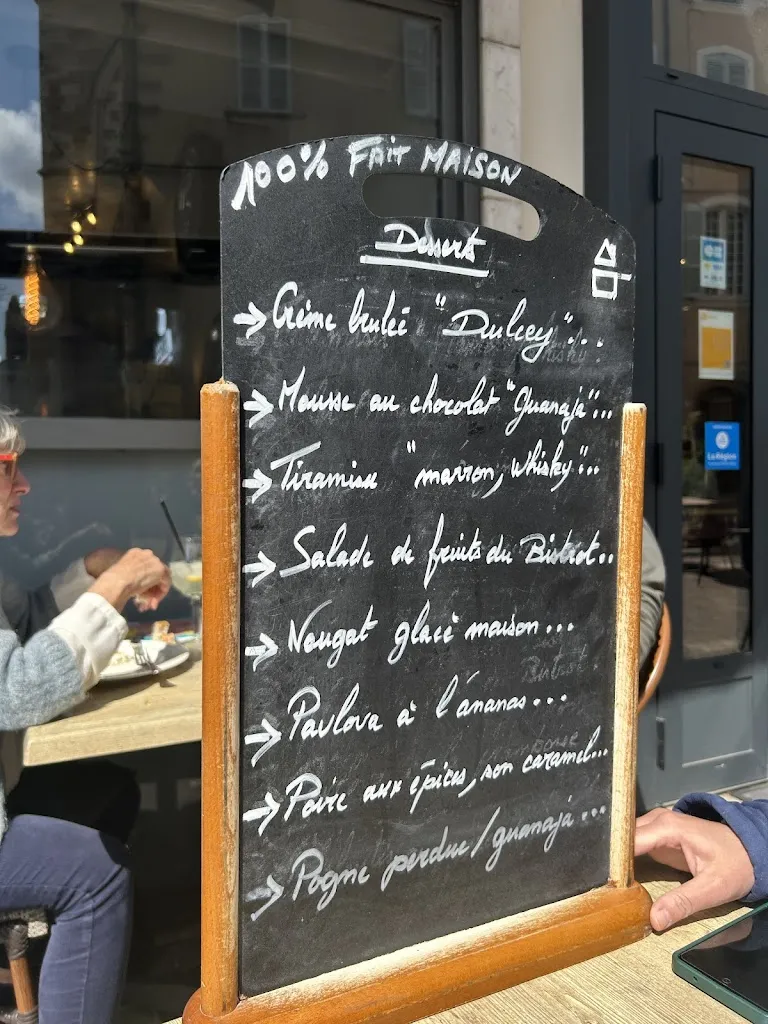 100% FAIT MAISON
Desserts
→ Crème brulée "Dulcey"...
→ Mousse au chocolat "Guanaja"...
→ Tiramisu "marron, whisky"...
→ Salade de fruits du Bistrot...
→ Nougat glacé maison...
→ Pavlova à l'ananas...
→ Poire aux épices, son caramel...
→ Pogne perdue/guanaja...
La Région